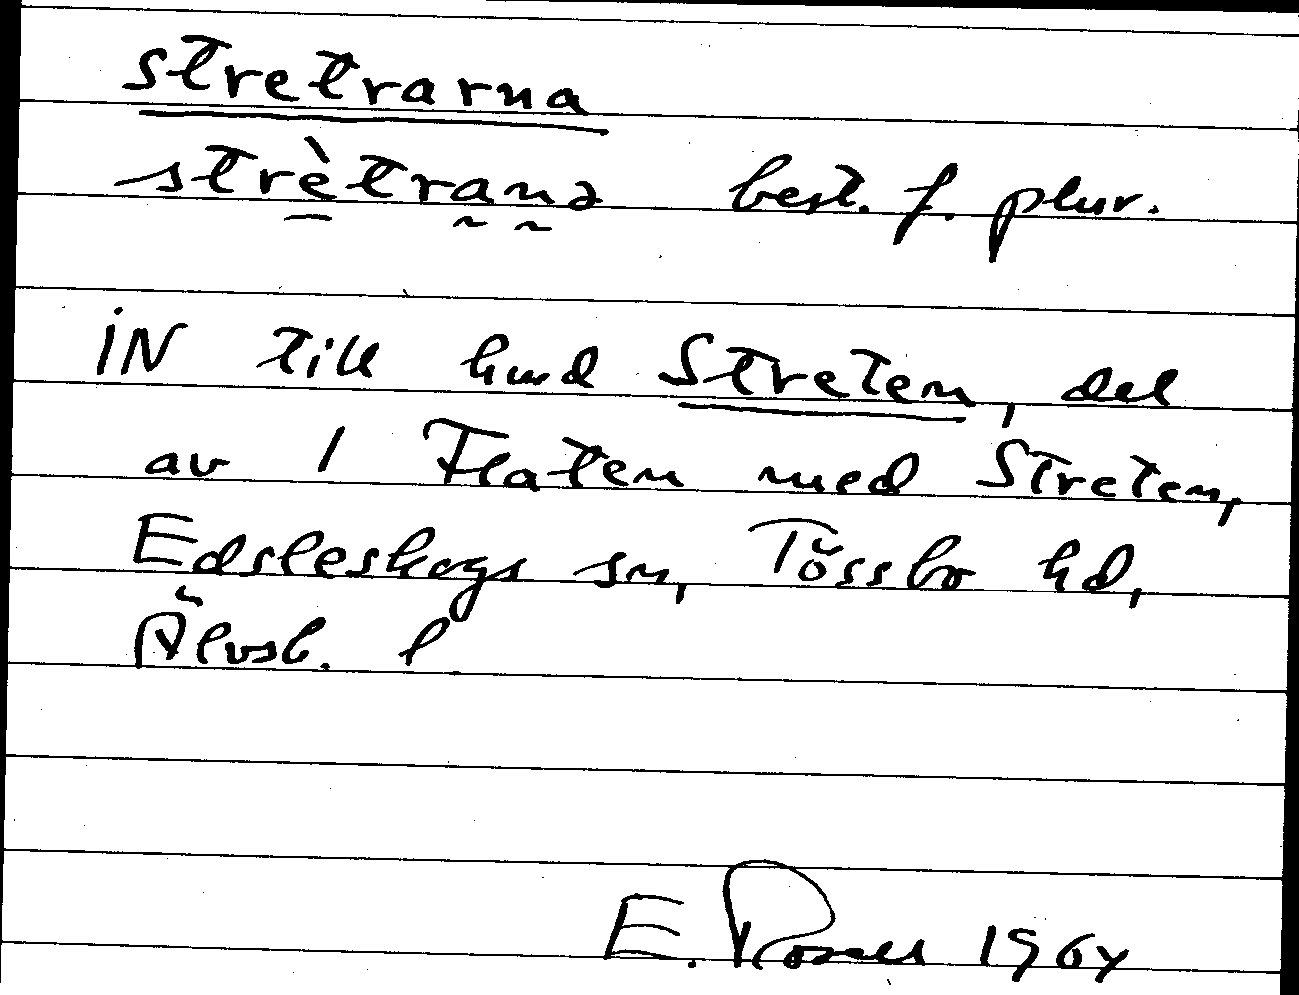 stretrarna
strètranə best. f. plur.
IN till hmd Streten, del
av 1 Flaten med Streten,
Edsleskogs sn, Tössbo hd,
Älvsb. l
E. 1964